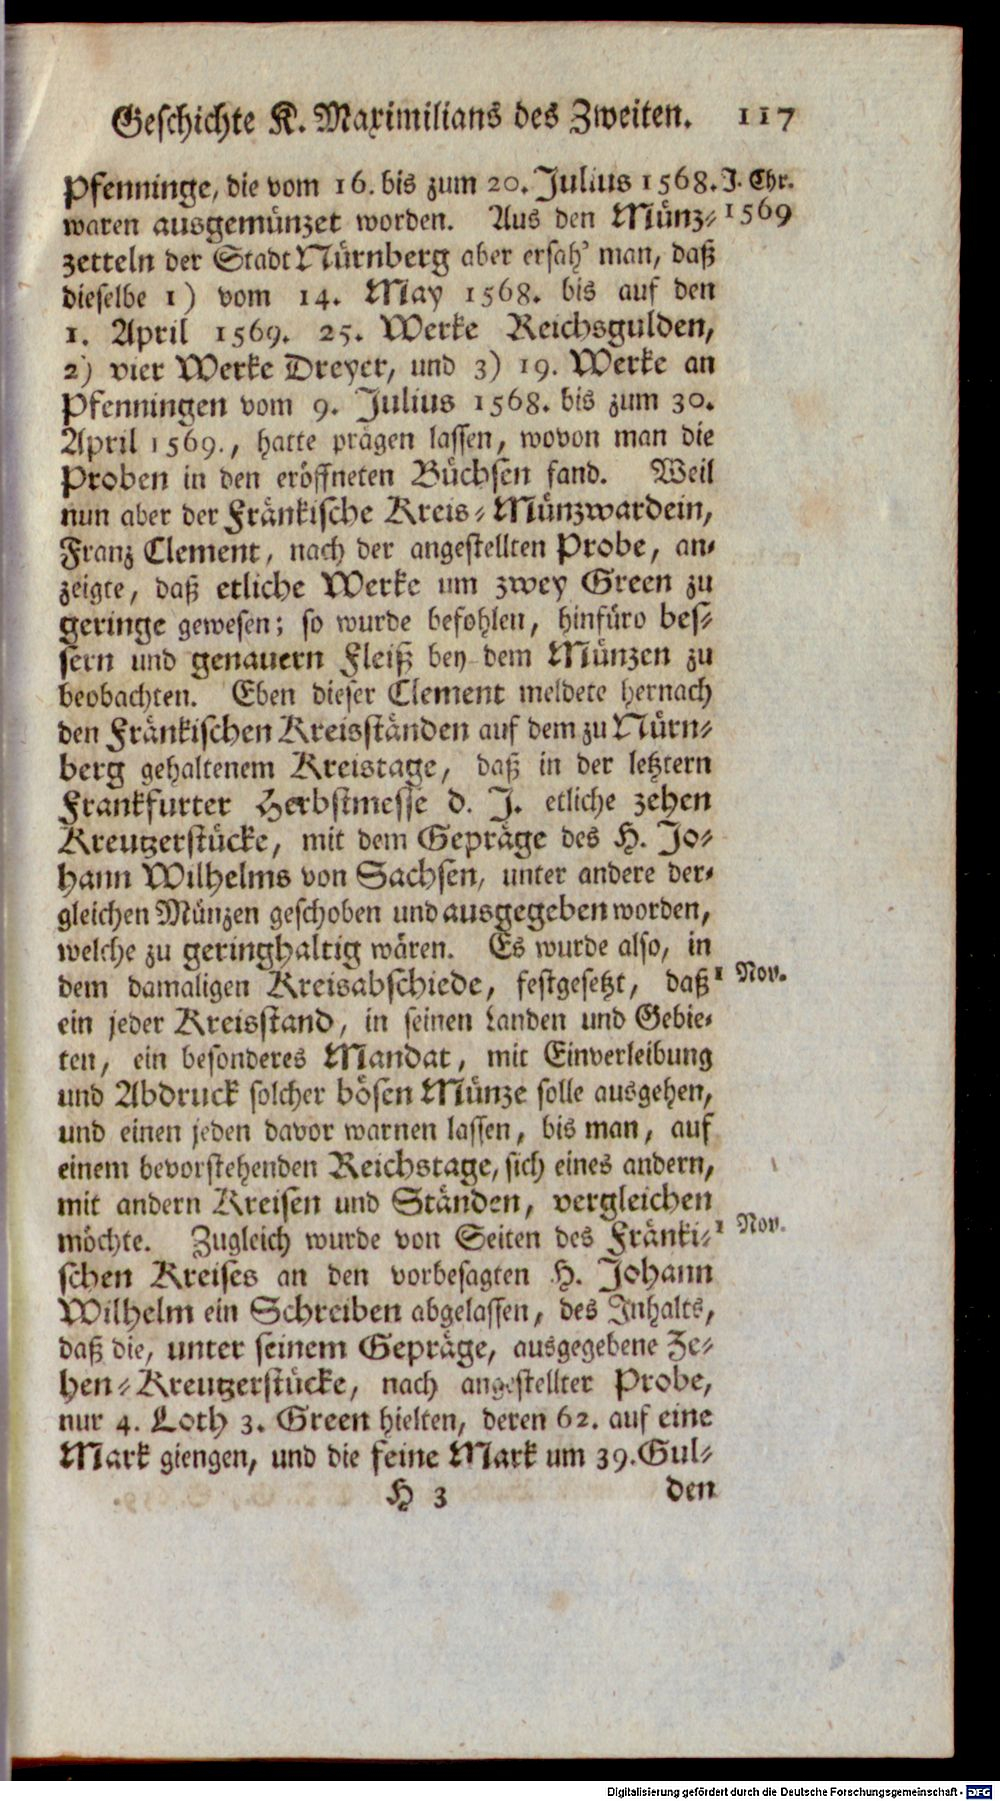 Geschichte K. Maximilians des Zweiten. 117
Pfenninge, die vom 16. bis zum 20. Julius 1568. J. Chr.
waren ausgemünzet worden. Aus den Münz- 1569
zetteln der Stadt Nürnberg aber ersah' man, daß
dieselbe 1) vom 14. May 1568. bis auf den
1. April 1569. 25. Werke Reichsgulden,
2) vier Werke Dreyer, und 3) 19. Werke an
Pfenningen vom 9. Julius 1568. bis zum 30.
April 1569., hatte prägen lassen, wovon man die
Proben in den eröffneten Büchsen fand. Weil
nun aber der Fränkische Kreis-Münzwardein,
Franz Clement, nach der angestellten Probe, an-
zeigte, daß etliche Werke um zwey Green zu
geringe gewesen; so wurde befohlen, hinfüro bes-
sern und genauern Fleiß bey dem Münzen zu
beobachten. Eben dieser Clement meldete hernach
den Fränkischen Kreisständen auf dem zu Nürn-
berg gehaltenem Kreistage, daß in der letztern
Frankfurter Herbstmesse d. J. etliche zehen
Kreutzerstücke, mit dem Gepräge des H. Jo-
hann Wilhelms von Sachsen, unter andere der-
gleichen Münzen geschoben und ausgegeben worden,
welche zu geringhaltig wären. Es wurde also, in
dem damaligen Kreisabschiede, festgesetzt, daß 1 Nov.
ein jeder Kreisstand, in seinen Landen und Gebie-
ten, ein besonderes Mandat, mit Einverleibung
und Abdruck solcher bösen Münze solle ausgehen,
und einen jeden davor warnen lassen, bis man, auf
einem bevorstehenden Reichstage, sich eines andern,
mit andern Kreisen und Ständen, vergleichen
möchte. Zugleich wurde von Seiten des Fränki- 1 Nov.
schen Kreises an den vorbesagten H. Johann
Wilhelm ein Schreiben abgelassen, des Inhalts,
daß die, unter seinem Gepräge, ausgegebene Ze-
hen-Kreutzerstücke, nach angestellter Probe,
nur 4. Loth 3. Green hielten, deren 62. auf eine
Mark giengen, und die feine Mark um 39. Gul-
H 3 den
Digitalisierung gefördert durch die Deutsche Forschungsgemeinschaft - DFG